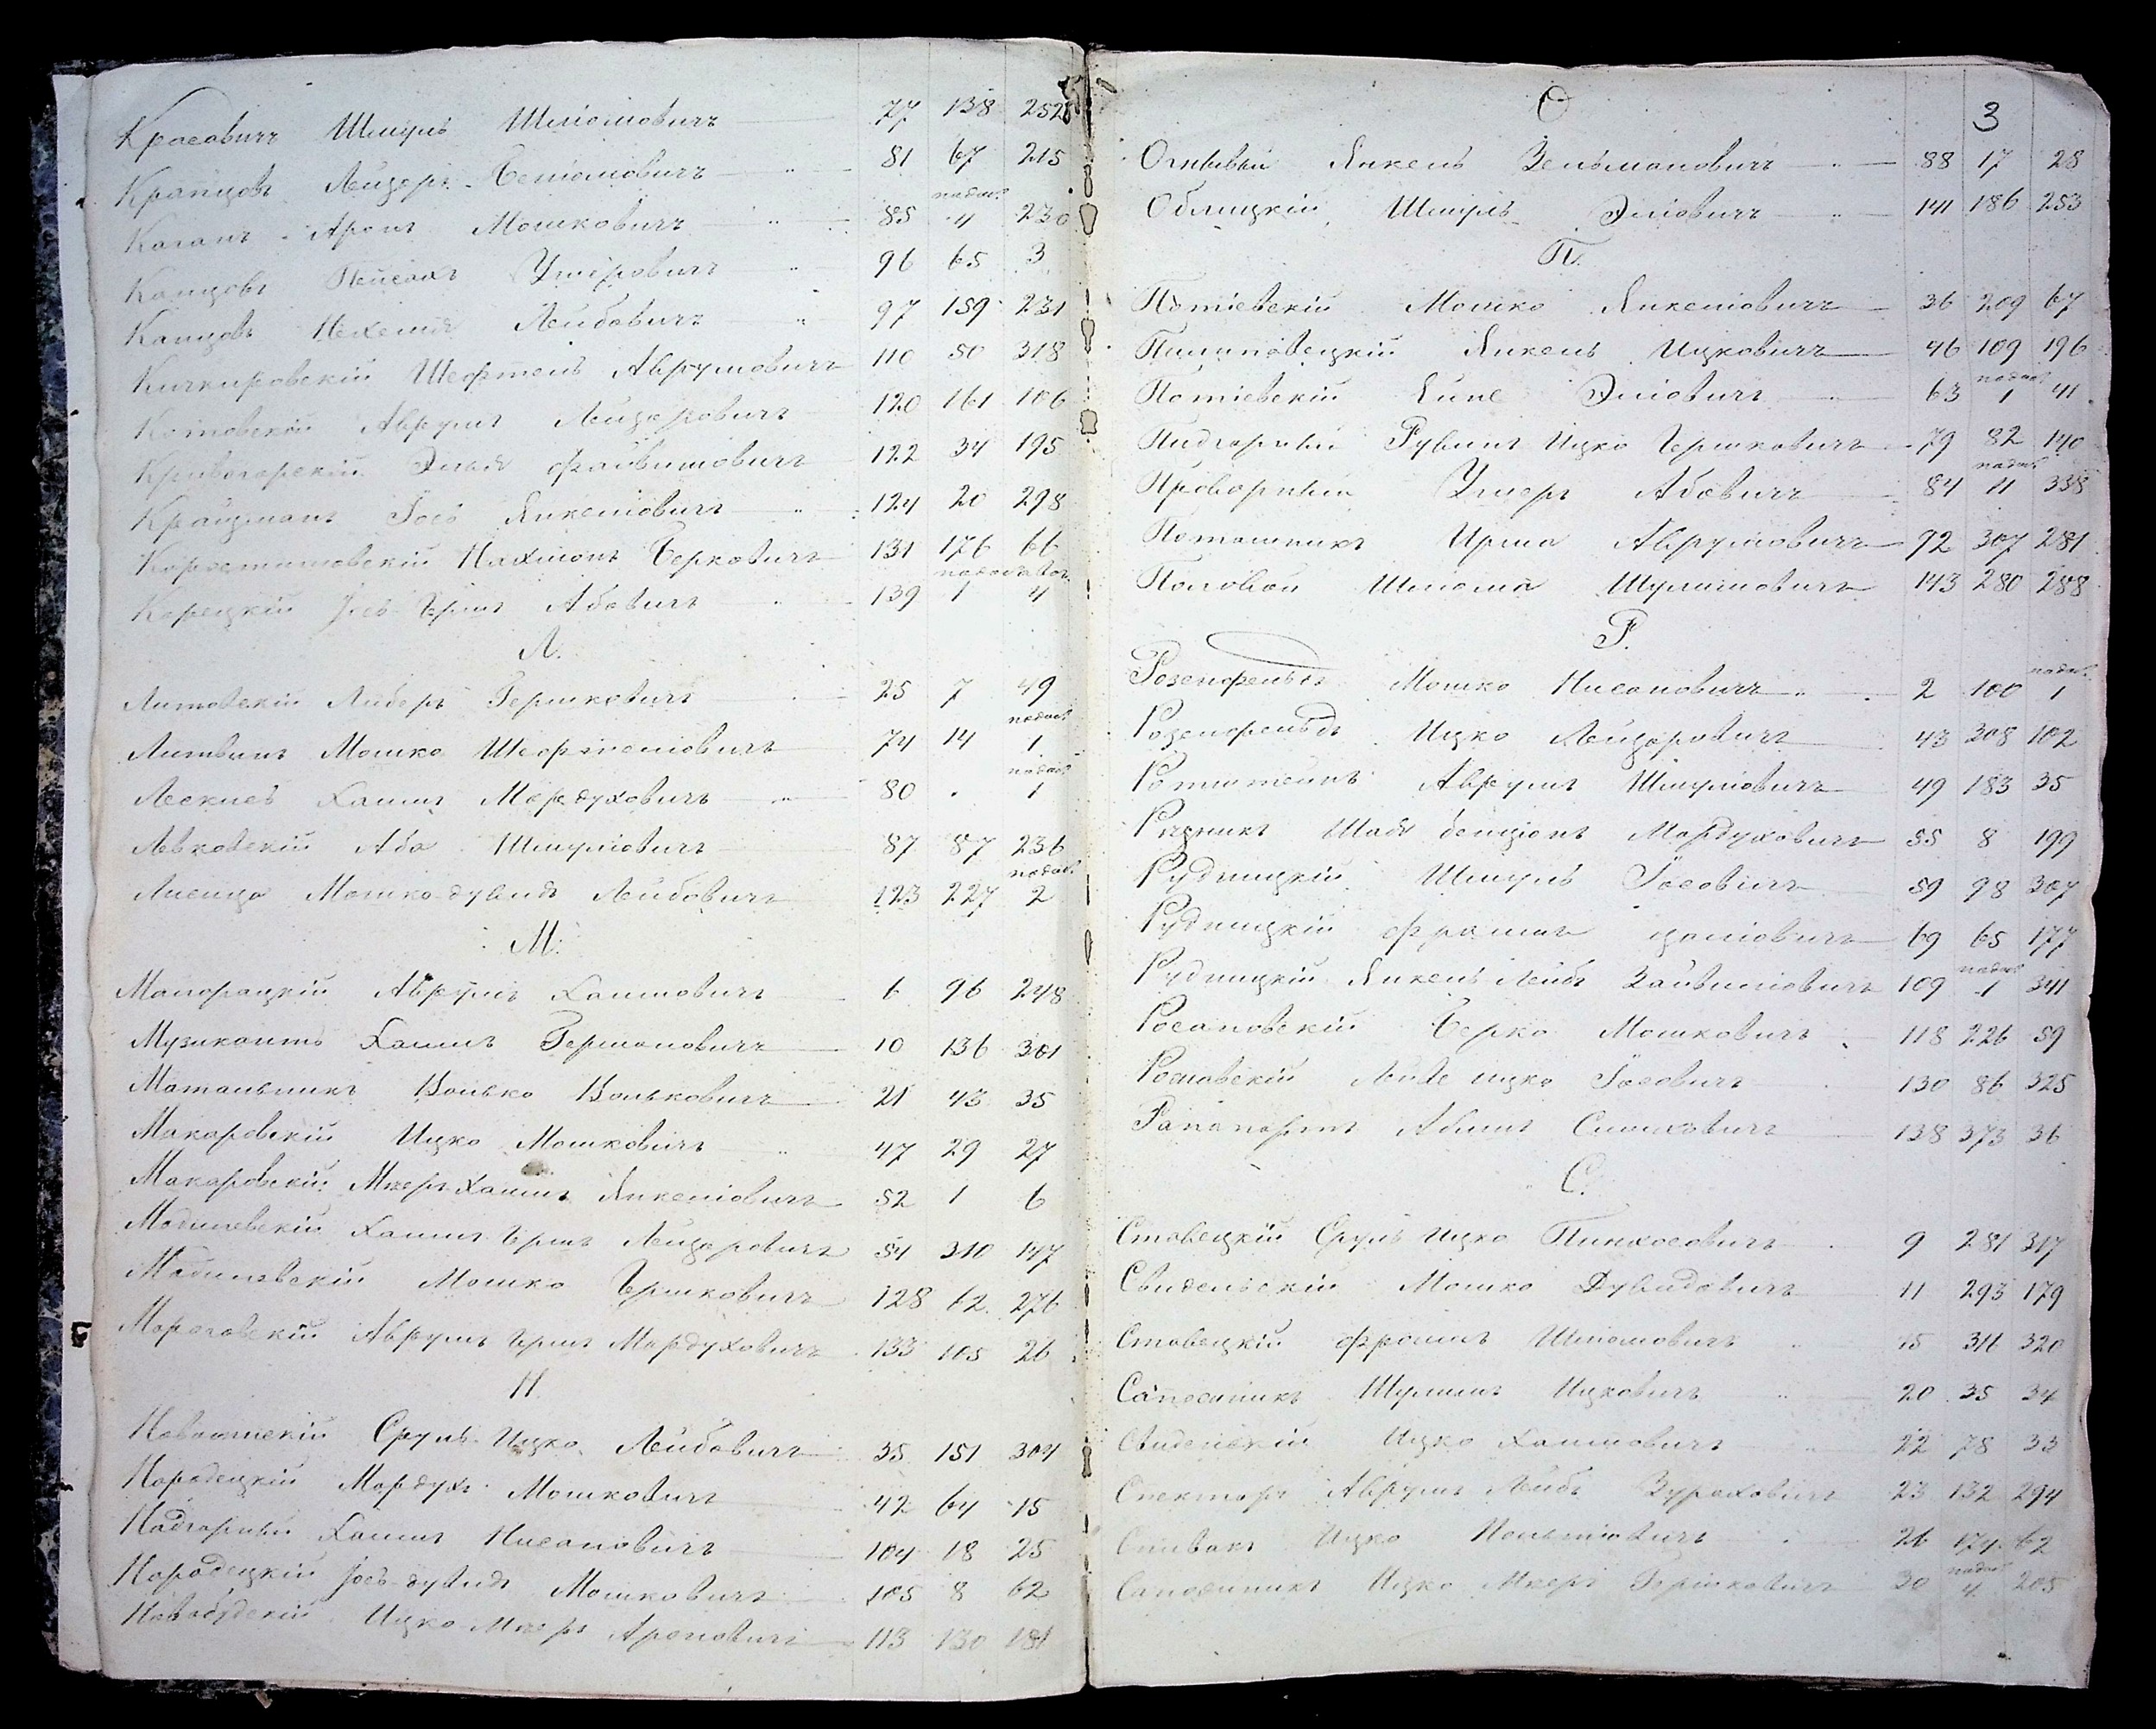 Красовичъ Шмуль Шліомовичъ 77 138 252
Крапцовъ Лейзеръ Беніоміовичъ 81 67 215
Каганъ Аронъ Мошковичъ 85 подат. 4 230
Канцовъ Пейсахъ Ушеровичъ 96 65 3
Канцовъ Нехемія Лейбовичъ 97 159 231
Шефтель Аврумовичъ 110 50 318
Котовскій Аврумъ Лейзеровичъ 120 161 106
Кривогорскій Эльа Файвишовичъ 122 34 195
Крайцманъ Іось Янкеліовичъ 124 20 298
Коростишовскій Нахманъ Берковичъ 131 176 66
Корецкій Іось Гершъ Абовичъ 139 1 4
Л.
Литовскій Лейберъ Гершковичъ 25 7 49
Литвинъ Мошко Шефтеліовичъ 74 14 подат. 1
Хаимъ Мордуховичъ 80 подат. 1
Левковскій Аба Шмуліовичъ 87 87 236
Лисица Мошко-дувидъ Лейбовичъ 123 227 подат. 2
М.
Аврумъ Хаимовичъ 6 96 248
Музикантъ Хаимъ Германовичъ 10 136 301
Волько Вольковичъ 21 43 35
Макаровскій Ицко Мошковичъ 47 29 27
Макаровскій Мееръ Хаимъ Янкеліовичъ 52 1 6
Могилевскій Хаимъ Гершъ Лейзеровичъ 54 310 147
Могилевскій Мошко Гершковичъ 128 62 276
Аврумъ Гершъ Мордуховичъ 133 105 26
Н.
Сруль Ицко Лейбовичъ 35 151 304
Народецкій Мордухъ Мошковичъ 42 64 15
Надгорный Хаимъ Нисановичъ 104 18 25
Народецкій Іось-дувидъ Мошковичъ 105 8 62
Ицко Мееръ Ароновичъ 113 130 181
О
3
Огневый Янкель Зельмановичъ 88 17 28
Облицкій Шмуль Эліовичъ 141 186 253
П.
Потіевскій Мошко Янкеліовичъ 36 209 67
Пилиповецкій Янкель Ицковичъ 46 109 196
Потіевскій Эліовичъ 63 подат. 1 41
Пидгорный Рувинъ Ицко Гершковичъ 79 82 140
Проворный Ушеръ Абовичъ 84 подат. 11 338
Поташникъ Ирма Аврумовичъ 92 307 281
Половой Шліома Шулимовичъ 143 280 288
Р.
Розенфельдъ Мошко Нисановичъ 2 100 подат. 1
Розенфельдъ Ицко Лейзеровичъ 43 308 102
Ротштейнъ Аврумъ Шмуліовичъ 49 183 35
Рѣзникъ Шая бенціонъ Мордуховичъ 55 8 199
Рудницкій Шмуль Іосовичъ 59 98 307
Рудницкій Фроимъ 69 65 177
Рудницкій Янкель Лейбъ Зайвиліовичъ 109 подат. 1 341
Росановскій Берко Мошковичъ 118 226 59
Лейбе ицко Іосовичъ 130 86 325
Рапапортъ Абимъ Симховичъ 138 373 36
С.
Ставецкій Сруль Ицко Пинхосовичъ 9 281 317
Свидельскій Мошко Дувидовичъ 11 293 179
Ставецкій Фроимъ Шліомовичъ 15 311 320
Сапожникъ Шулимъ Ицковичъ 20 35 34
Свидельскій Ицко Хаимовичъ 22 78 33
Спекторъ Аврумъ Лейбъ Зураховичъ 23 132 294
Спивакъ Ицко 26 174 62
Сапожникъ Ицко Мееръ Гершковичъ 30 подат. 4 205